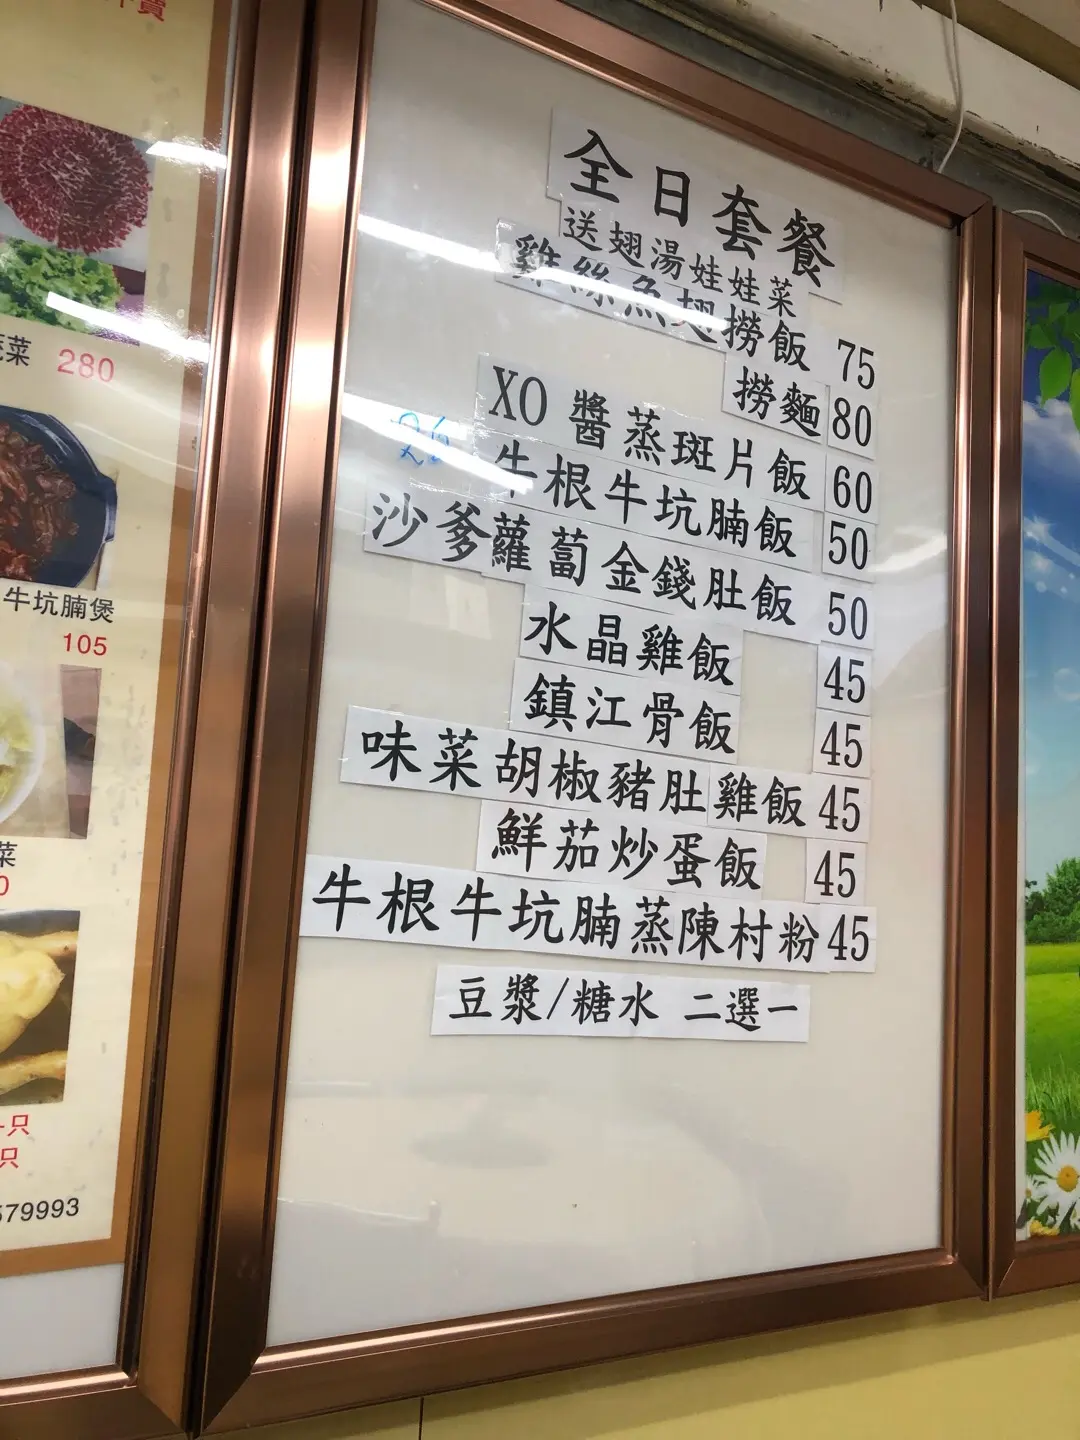 菜 280
牛坑腩煲
105
菜
0
只
只
579993
全日套餐
送翅湯娃娃菜
雞絲魚翅撈飯 75
撈麵 80
XO醬蒸斑片飯 60
牛根牛坑腩飯 50
沙爹蘿蔔金錢肚飯 50
水晶雞飯 45
鎮江骨飯 45
味菜胡椒豬肚雞飯 45
鮮茄炒蛋飯 45
牛根牛坑腩蒸陳村粉 45
豆漿/糖水 二選一